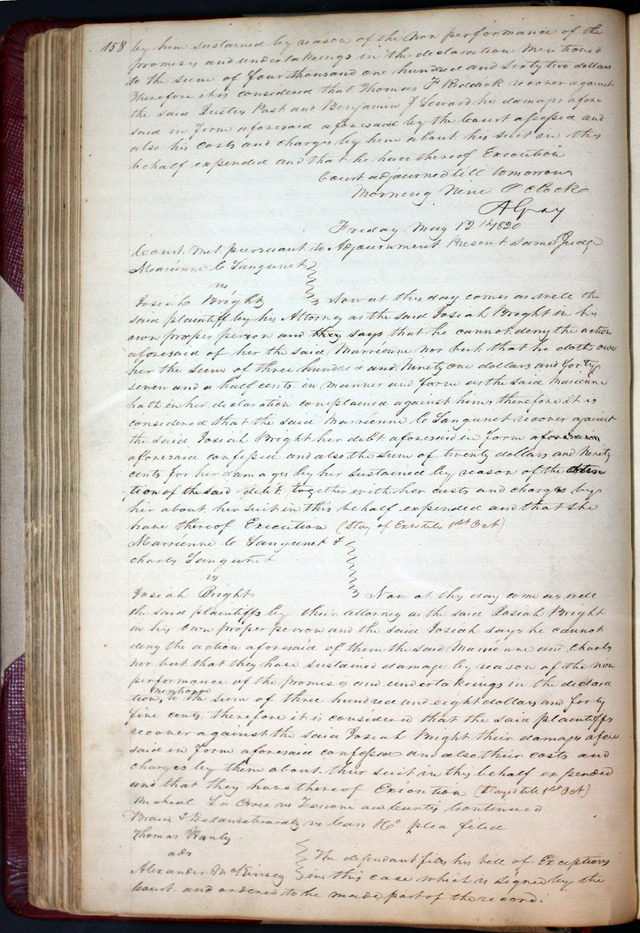 158 by him sustained by reason of the non performance of the
promises and undertakings in the declaration mentioned
to the sum of four thousand one hundred and sixty two dollars
Therefore it is considered that Thomas F Riddick recover against
the said Justus Post and Benjamin J Seward his damages afore
said in form aforesaid aforesaid by the court assessed and
also his costs and charges by him about his suit in this
behalf expended and that he have thereof Execution
Court adjourned till tomorrow
Morning Nine O Clock
A Gray
Friday May 12th 1820
Court met pursuant to Adjournment Present same Judge
Marienne C Sanguinet
vs
Josiah Bright Now at this day comes as well the
said plaintiff by his Attorney as the said Josiah Bright in his
own proper person and says that he cannot deny the action
aforesaid of her the said Marrienne nor but that he doth owe
her the sum of three hundred and Ninety one dollars and forty
seven and a half cents in manner and form as the said Marienne
hath in her declaration complained against him, therefore it is
considered that the said Marrienne C Sanguinet recover against
the said Josiah Bright her debt aforesaid in form aforesaid
aforesaid confessed and also the sum of twenty dollars and Ninety
cents for her damages by her sustained by reason of the deten
tion of the said debt, together with her costs and charges by
her about her suit in this behalf expended and that she
have thereof Execution (Stay of Ex till 1st Oct)
Marrienne C Sanguinet &
charles Sanguinet
vs
Josiah Bright Now at this day come as well
the said plaintiffs by their attorney as the said Josiah Bright
in his own proper person and the said Josiah says he cannot
deny the action aforesaid of them the said Marrienne and Charles
nor but that they have sustained damage by reason of the non
performance of the promises and undertakings in the declara
mentioned
tion, to the sum of three hundred and eight dollars and forty
five cents, therefore it is considered that the said plaintiffs
recover against the said Josiah Bright their damages afore
said in form aforesaid confessed and also their costs and
charges by them about their suit in this behalf expended
and that they have thereof Execution (Stayed till 1st Oct)
vs continued
vs plea filed
Thomas Hanly
ads
Alexander McKinsey The defendant files his bill of Exceptions
in this case which is signed by the
court and ordered to be made part of the record.